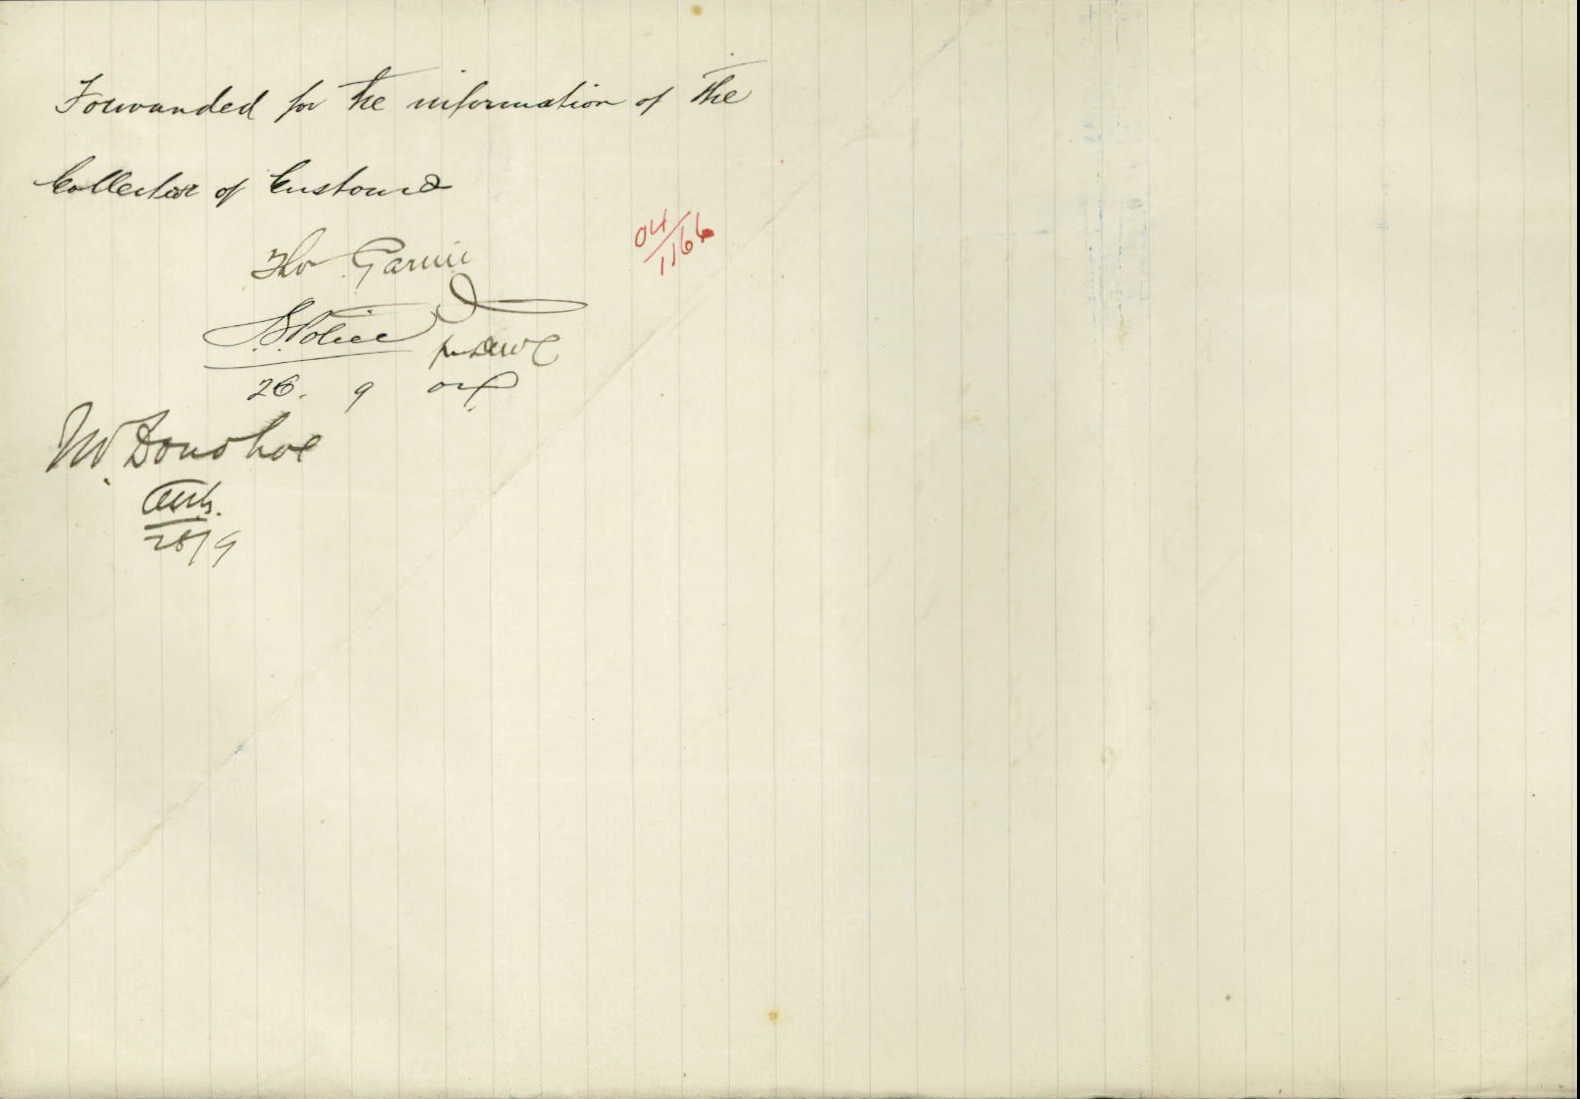 Forwarded for the information of the
Collector of Customs
04/1166
Tho Garvin
S. Police
26. 9 04
Mr Donohoe
28/9